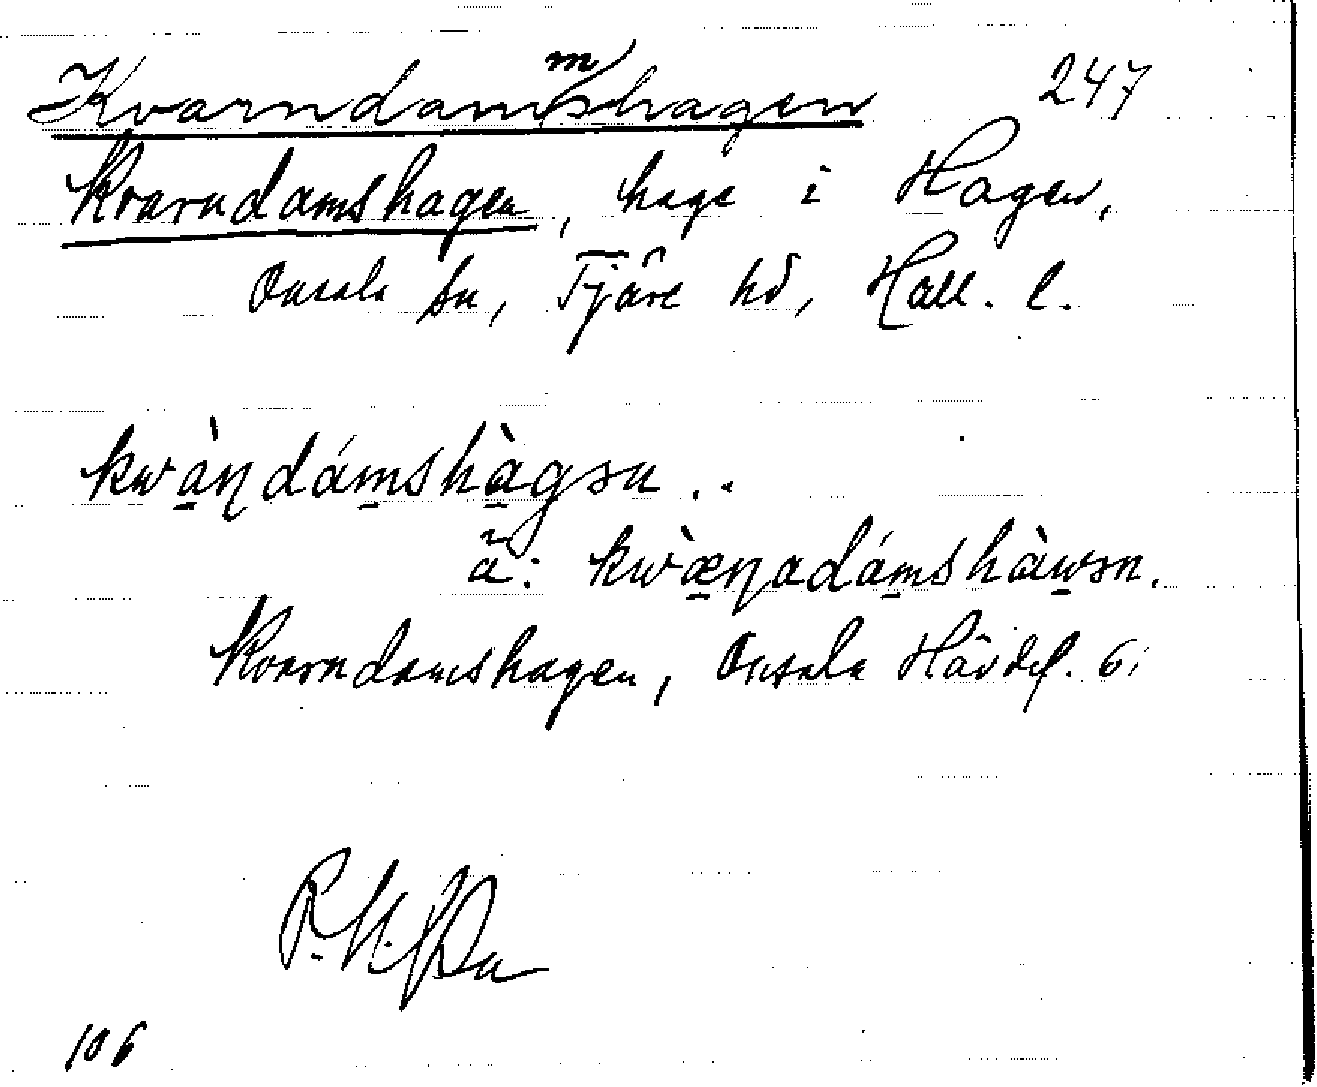 Kvarndammshagen 247
Kvarndamshagen, hage i Hagen,
Onsala sn, Fjäre hd, Hall. l.
kwàṉdámshàgən ..
ä̃: kwæ̀ṉadámshàwən.
Kvarndamshagen, Onsala Hävdef. 6:
106